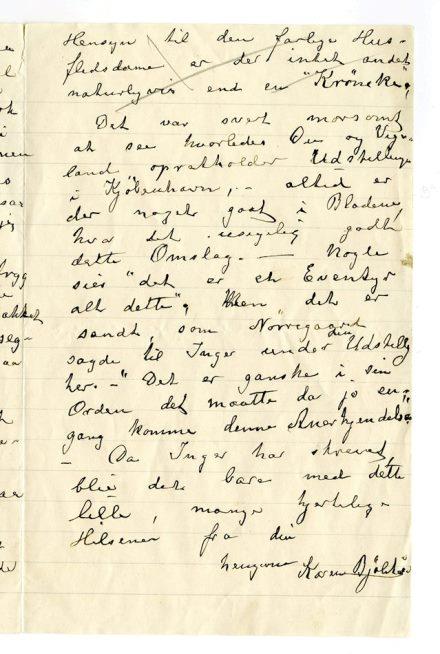 Hensyn til den farlige Hus-
flidsdame er der intet andet
naturligvis end en "Krönike",
Det var svert morsomt
at see hvorledes Du og Vige-
land opratholder Udstillinge
i Kjöbenhavn, - altid er
der noget godt i Bladene,
hva det usigelig godt
dette Omslag. — Nogle
sies "det er et Eventyr
alt dette", Men det er
sandt, som Nörregaard
sagde til Inger under din Udstilling
her. - "Det er ganske i sin
Orden det maatte da jo en-
gang komme denne Anerkjendelse"
- Da Inger har skrevet,
blir det bare med dette
lille, mange hjertelige
Hilsener fra din
hengivne Karen Bjölstad